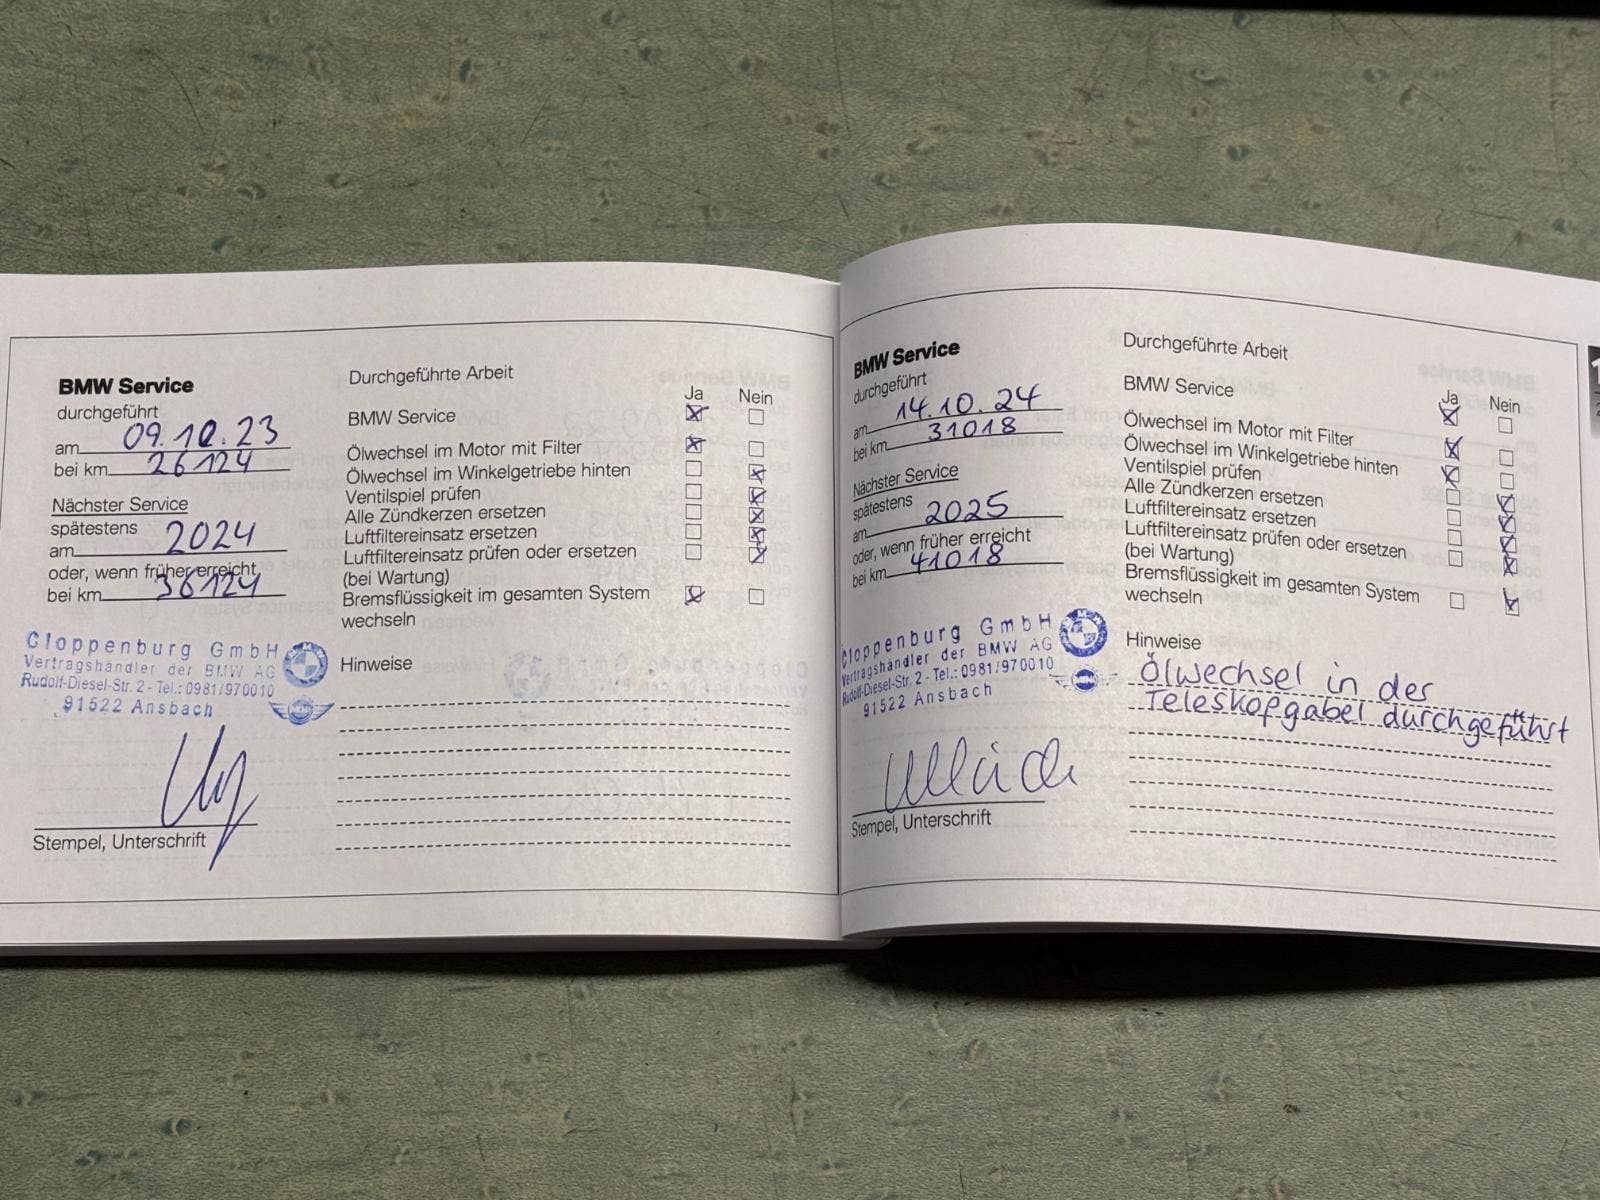 BMW Service
durchgeführt
am 09.10.23
bei km 26124
Nächster Service
spätestens
am 2024
oder, wenn früher erreicht
bei km 36124
Cloppenburg GmbH
Vertragshändler der BMW AG
Rudolf-Diesel-Str. 2 - Tel.: 0981/970010
91522 Ansbach
MINI
Stempel, Unterschrift
Durchgeführte Arbeit
Ja Nein
BMW Service
Ölwechsel im Motor mit Filter
Ölwechsel im Winkelgetriebe hinten
Ventilspiel prüfen
Alle Zündkerzen ersetzen
Luftfiltereinsatz ersetzen
Luftfiltereinsatz prüfen oder ersetzen
(bei Wartung)
Bremsflüssigkeit im gesamten System
wechseln
Hinweise
BMW Service
durchgeführt
am 14.10.24
bei km 31018
Nächster Service
spätestens
am 2025
oder, wenn früher erreicht
bei km 41018
Cloppenburg GmbH
Vertragshändler der BMW AG
Rudolf-Diesel-Str. 2 - Tel.: 0981/970010
91522 Ansbach
MINI
Stempel, Unterschrift
Durchgeführte Arbeit
Ja Nein
BMW Service
Ölwechsel im Motor mit Filter
Ölwechsel im Winkelgetriebe hinten
Ventilspiel prüfen
Alle Zündkerzen ersetzen
Luftfiltereinsatz ersetzen
Luftfiltereinsatz prüfen oder ersetzen
(bei Wartung)
Bremsflüssigkeit im gesamten System
wechseln
Hinweise
Ölwechsel in der
Teleskopgabel durchgeführt